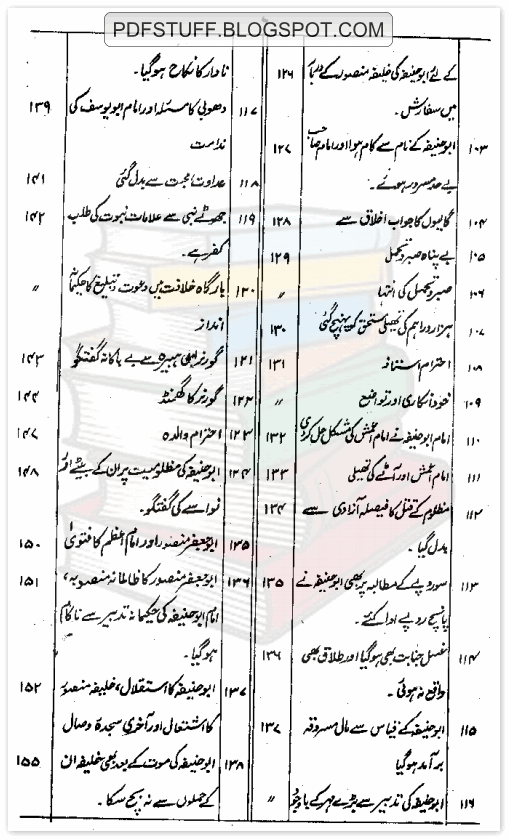 PDFSTUFF.BLOGSPOT.COM
کے لئے ابوحنیفہ کی خلیفہ منصور کے دربار ۱۲۶
میں سفارش۔
۱۰۳ ابوحنیفہ کے نام سے کام ہوا اور امام صاحب ۱۲۷
بے حد مسرور ہوئے۔
۱۰۴ گالیوں کا جواب اخلاق سے ۱۲۸
۱۰۵ بے پناہ صبر و تحمل ۱۲۹
۱۰۶ صبر و تحمل کی انتہا ״
۱۰۷ ہزار دراہم کی تھیلی مستحق کو پہنچ گئی ۱۳۰
۱۰۸ احترام استاذ ۱۳۱
۱۰۹ خود انکاری اور تواضع ״
۱۱۰ امام ابوحنیفہ نے امام اعمش کی مشکل حل کر دی ۱۳۲
۱۱۱ امام اعمش اور آٹے کی تھیلی ۱۳۳
۱۱۲ مظلوم کے قتل کا فیصلہ آزادی سے ۱۳۴
بدل گیا۔
۱۱۳ سو روپے کے مطالبہ پر بھی ابوحنیفہ نے ۱۳۵
پانچ روپے ادا کئے۔
۱۱۴ غسل جنابت بھی ہوگیا اور طلاق بھی ۱۳۶
واقع نہ ہوئی۔
۱۱۵ ابوحنیفہ کے قیاس سے مال مسروقہ ۱۳۷
برآمد ہوگیا
۱۱۶ ابوحنیفہ کی تدبیر سے بڑے مہر کے باوجود ״
نادار کا نکاح ہوگیا۔
۱۱۷ دھوبی کا مسئلہ اور امام ابویوسف کی ۱۳۹
ندامت
۱۱۸ عداوت محبت سے بدل گئی ۱۴۱
۱۱۹ جھوٹے نبی سے علامات نبوت کی طلب ۱۴۲
کفر ہے۔
۱۳۰ بارگاہ خلافت میں دعوت و تبلیغ کا حکیمانہ ״
انداز
۱۲۱ گورنر ابن ہبیرہ سے بے باکانہ گفتگو ۱۴۳
۱۲۲ گورنر کا گھمنڈ ۱۴۴
۱۲۳ احترام والدہ ۱۴۷
۱۲۴ ابوحنیفہ کی مظلومیت پر ان کے بیٹے اور ۱۴۸
نواسے کی گفتگو۔
۱۳۵ ابوجعفر منصور اور امام اعظم کا فتویٰ ۱۵۰
۱۳۶ ابوجعفر منصور کا ظالمانہ منصوبہ، ۱۵۱
امام ابوحنیفہ کی حکیمانہ تدبیر سے ناکام
ہوگیا۔
۱۳۷ ابوحنیفہ کا استقلال، خلیفہ منصور ۱۵۲
کا اشتعال اور آخری سجدۂ وصال
۱۳۸ ابوحنیفہ کی موت کے بعد بھی خلیفہ ان ۱۵۵
کے حملوں سے نہ بچ سکا۔